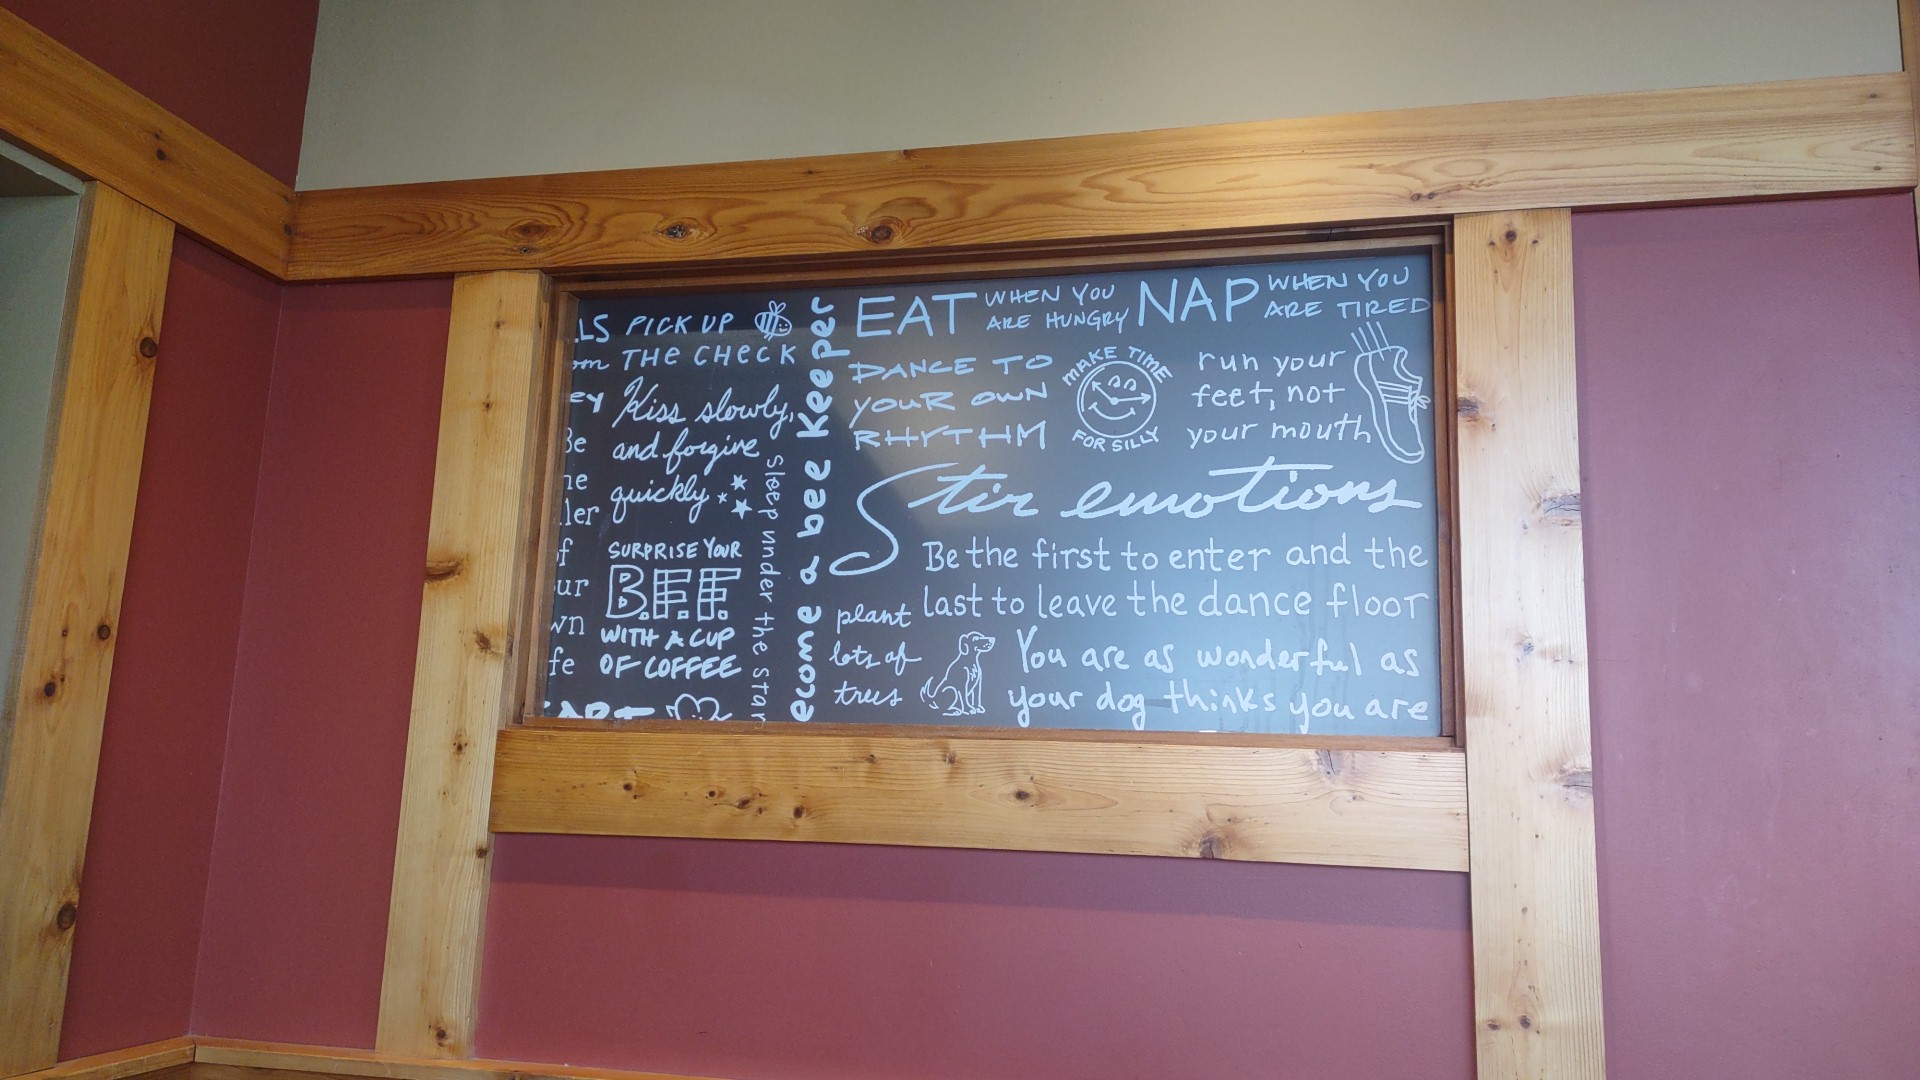 PICK UP
THE CHECK
Kiss slowly,
and forgive
quickly
SURPRISE YOUR
B.F.F.
WITH A CUP
OF COFFEE
Sleep under the star
ecome a bee keeper
EAT WHEN YOU
ARE HUNGRY
NAP WHEN YOU
ARE TIRED
DANCE TO
YOUR OWN
RHYTHM
MAKE TIME
FOR SILLY
run your
feet, not
your mouth
Stir emotions
Be the first to enter and the
last to leave the dance floor
plant
lots of
trees
You are as wonderful as
your dog thinks you are